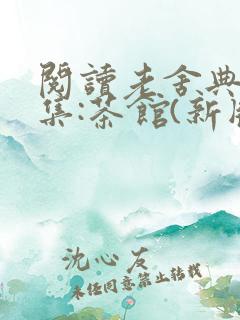 閱讀老舍典
集:茶館(新版
沈心友
未经同意禁止转载